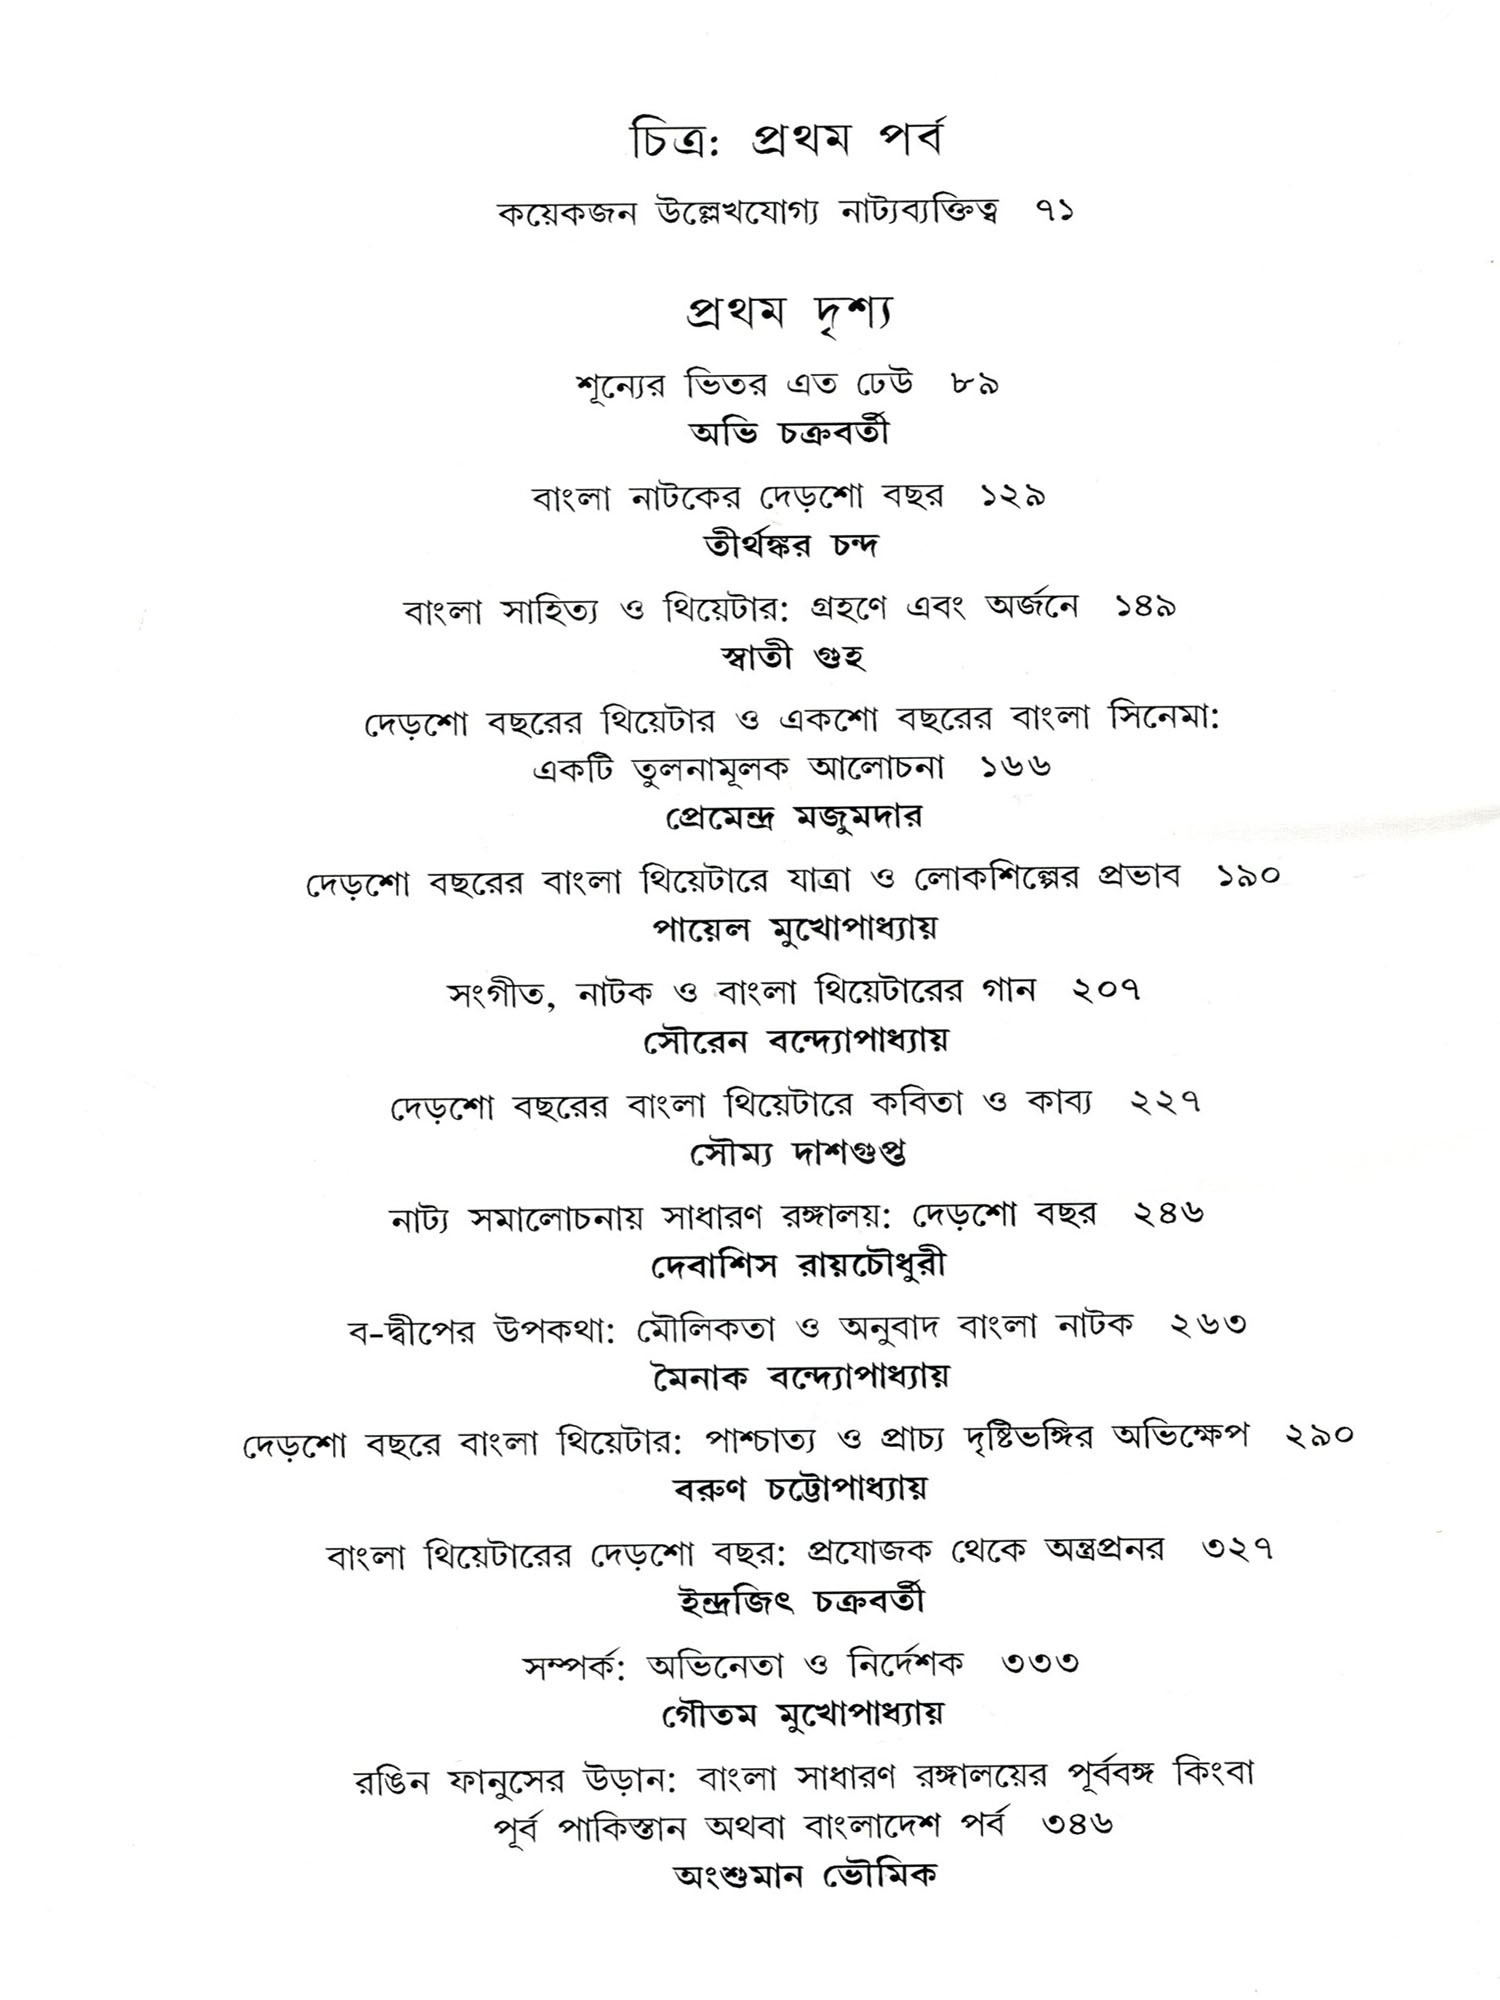 চিত্র: প্রথম পর্ব
কয়েকজন উল্লেখযোগ্য নাট্যব্যক্তিত্ব ৭১
প্রথম দৃশ্য
শূন্যের ভিতর এত ঢেউ ৮৯
অভি চক্রবর্তী
বাংলা নাটকের দেড়শো বছর ১২৯
তীর্থঙ্কর চন্দ
বাংলা সাহিত্য ও থিয়েটার: গ্রহণে এবং অর্জনে ১৪৯
স্বাতী গুহ
দেড়শো বছরের থিয়েটার ও একশো বছরের বাংলা সিনেমা:
একটি তুলনামূলক আলোচনা ১৬৬
প্রেমেন্দ্র মজুমদার
দেড়শো বছরের বাংলা থিয়েটারে যাত্রা ও লোকশিল্পের প্রভাব ১৯০
পায়েল মুখোপাধ্যায়
সংগীত, নাটক ও বাংলা থিয়েটারের গান ২০৭
সৌরেন বন্দ্যোপাধ্যায়
দেড়শো বছরের বাংলা থিয়েটারে কবিতা ও কাব্য ২২৭
সৌম্য দাশগুপ্ত
নাট্য সমালোচনায় সাধারণ রঙ্গালয়: দেড়শো বছর ২৪৬
দেবাশিস রায়চৌধুরী
ব-দ্বীপের উপকথা: মৌলিকতা ও অনুবাদ বাংলা নাটক ২৬৩
মৈনাক বন্দ্যোপাধ্যায়
দেড়শো বছরে বাংলা থিয়েটার: পাশ্চাত্য ও প্রাচ্য দৃষ্টিভঙ্গির অভিক্ষেপ ২৯০
বরুণ চট্টোপাধ্যায়
বাংলা থিয়েটারের দেড়শো বছর: প্রযোজক থেকে অন্ত্রপ্রনর ৩২৭
ইন্দ্রজিৎ চক্রবর্তী
সম্পর্ক: অভিনেতা ও নির্দেশক ৩৩৩
গৌতম মুখোপাধ্যায়
রঙিন ফানুসের উড়ান: বাংলা সাধারণ রঙ্গালয়ের পূর্ববঙ্গ কিংবা
পূর্ব পাকিস্তান অথবা বাংলাদেশ পর্ব ৩৪৬
অংশুমান ভৌমিক